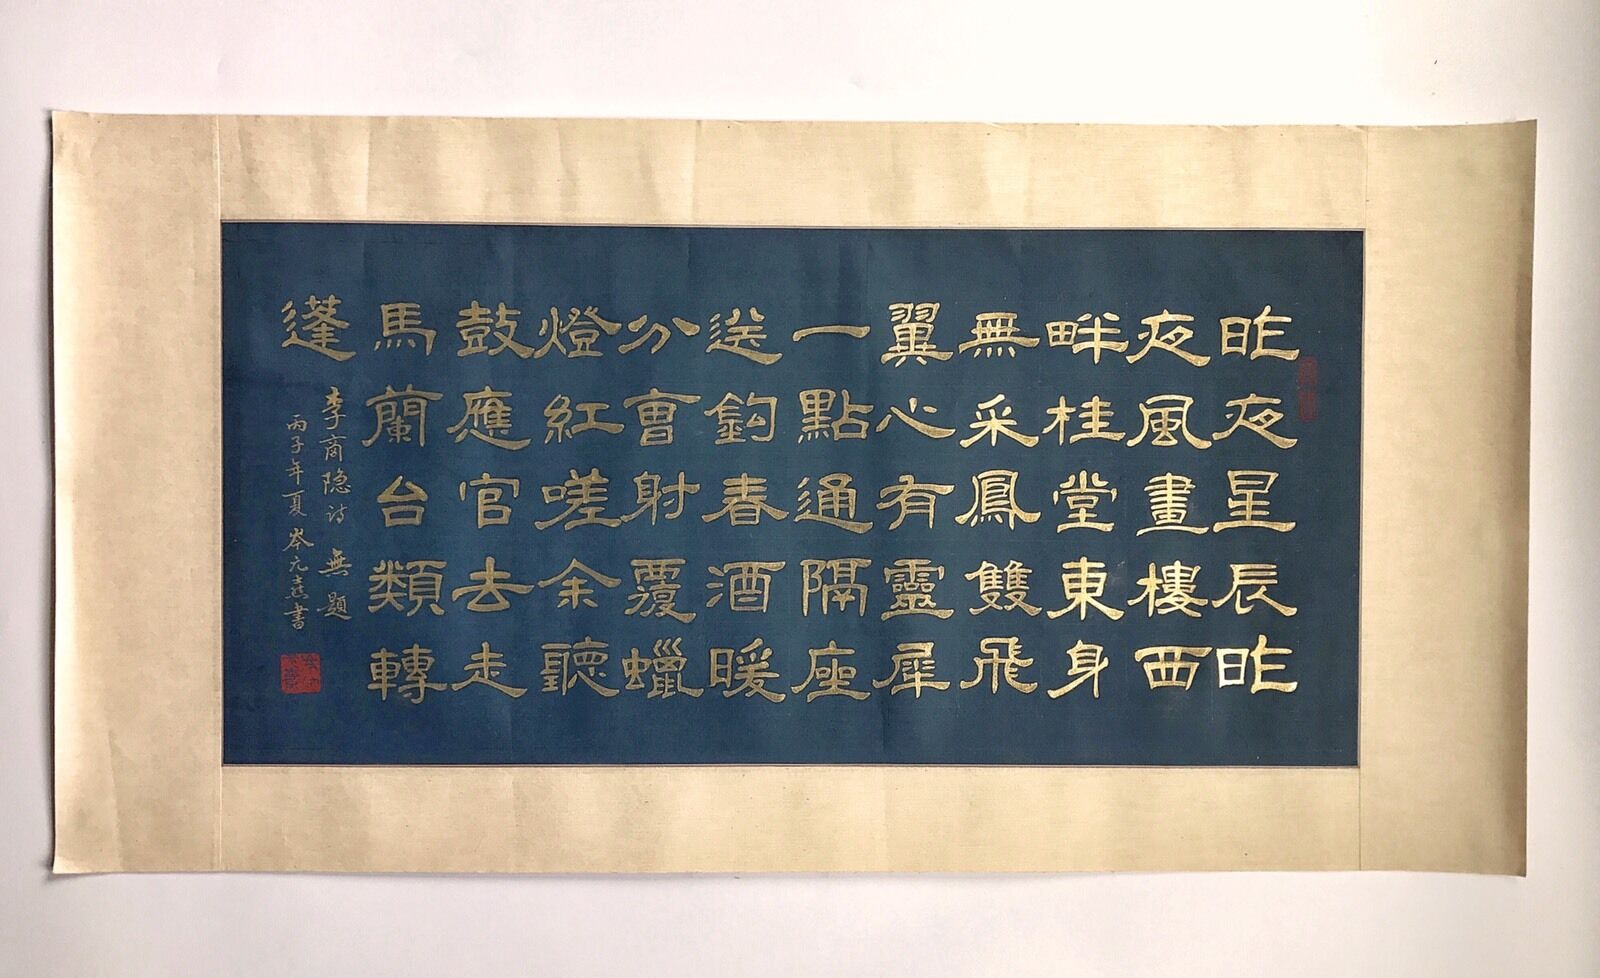 昨夜星辰昨
夜風畫樓西
畔桂堂東身
無采鳳雙飛
翼心有靈犀
一點通隔座
送鈎春酒暖
分曹射覆蠟
燈紅嗟余聽
鼓應官去走
馬蘭台類轉
蓬
李商隐诗 無題
丙子年夏 岑元喜書